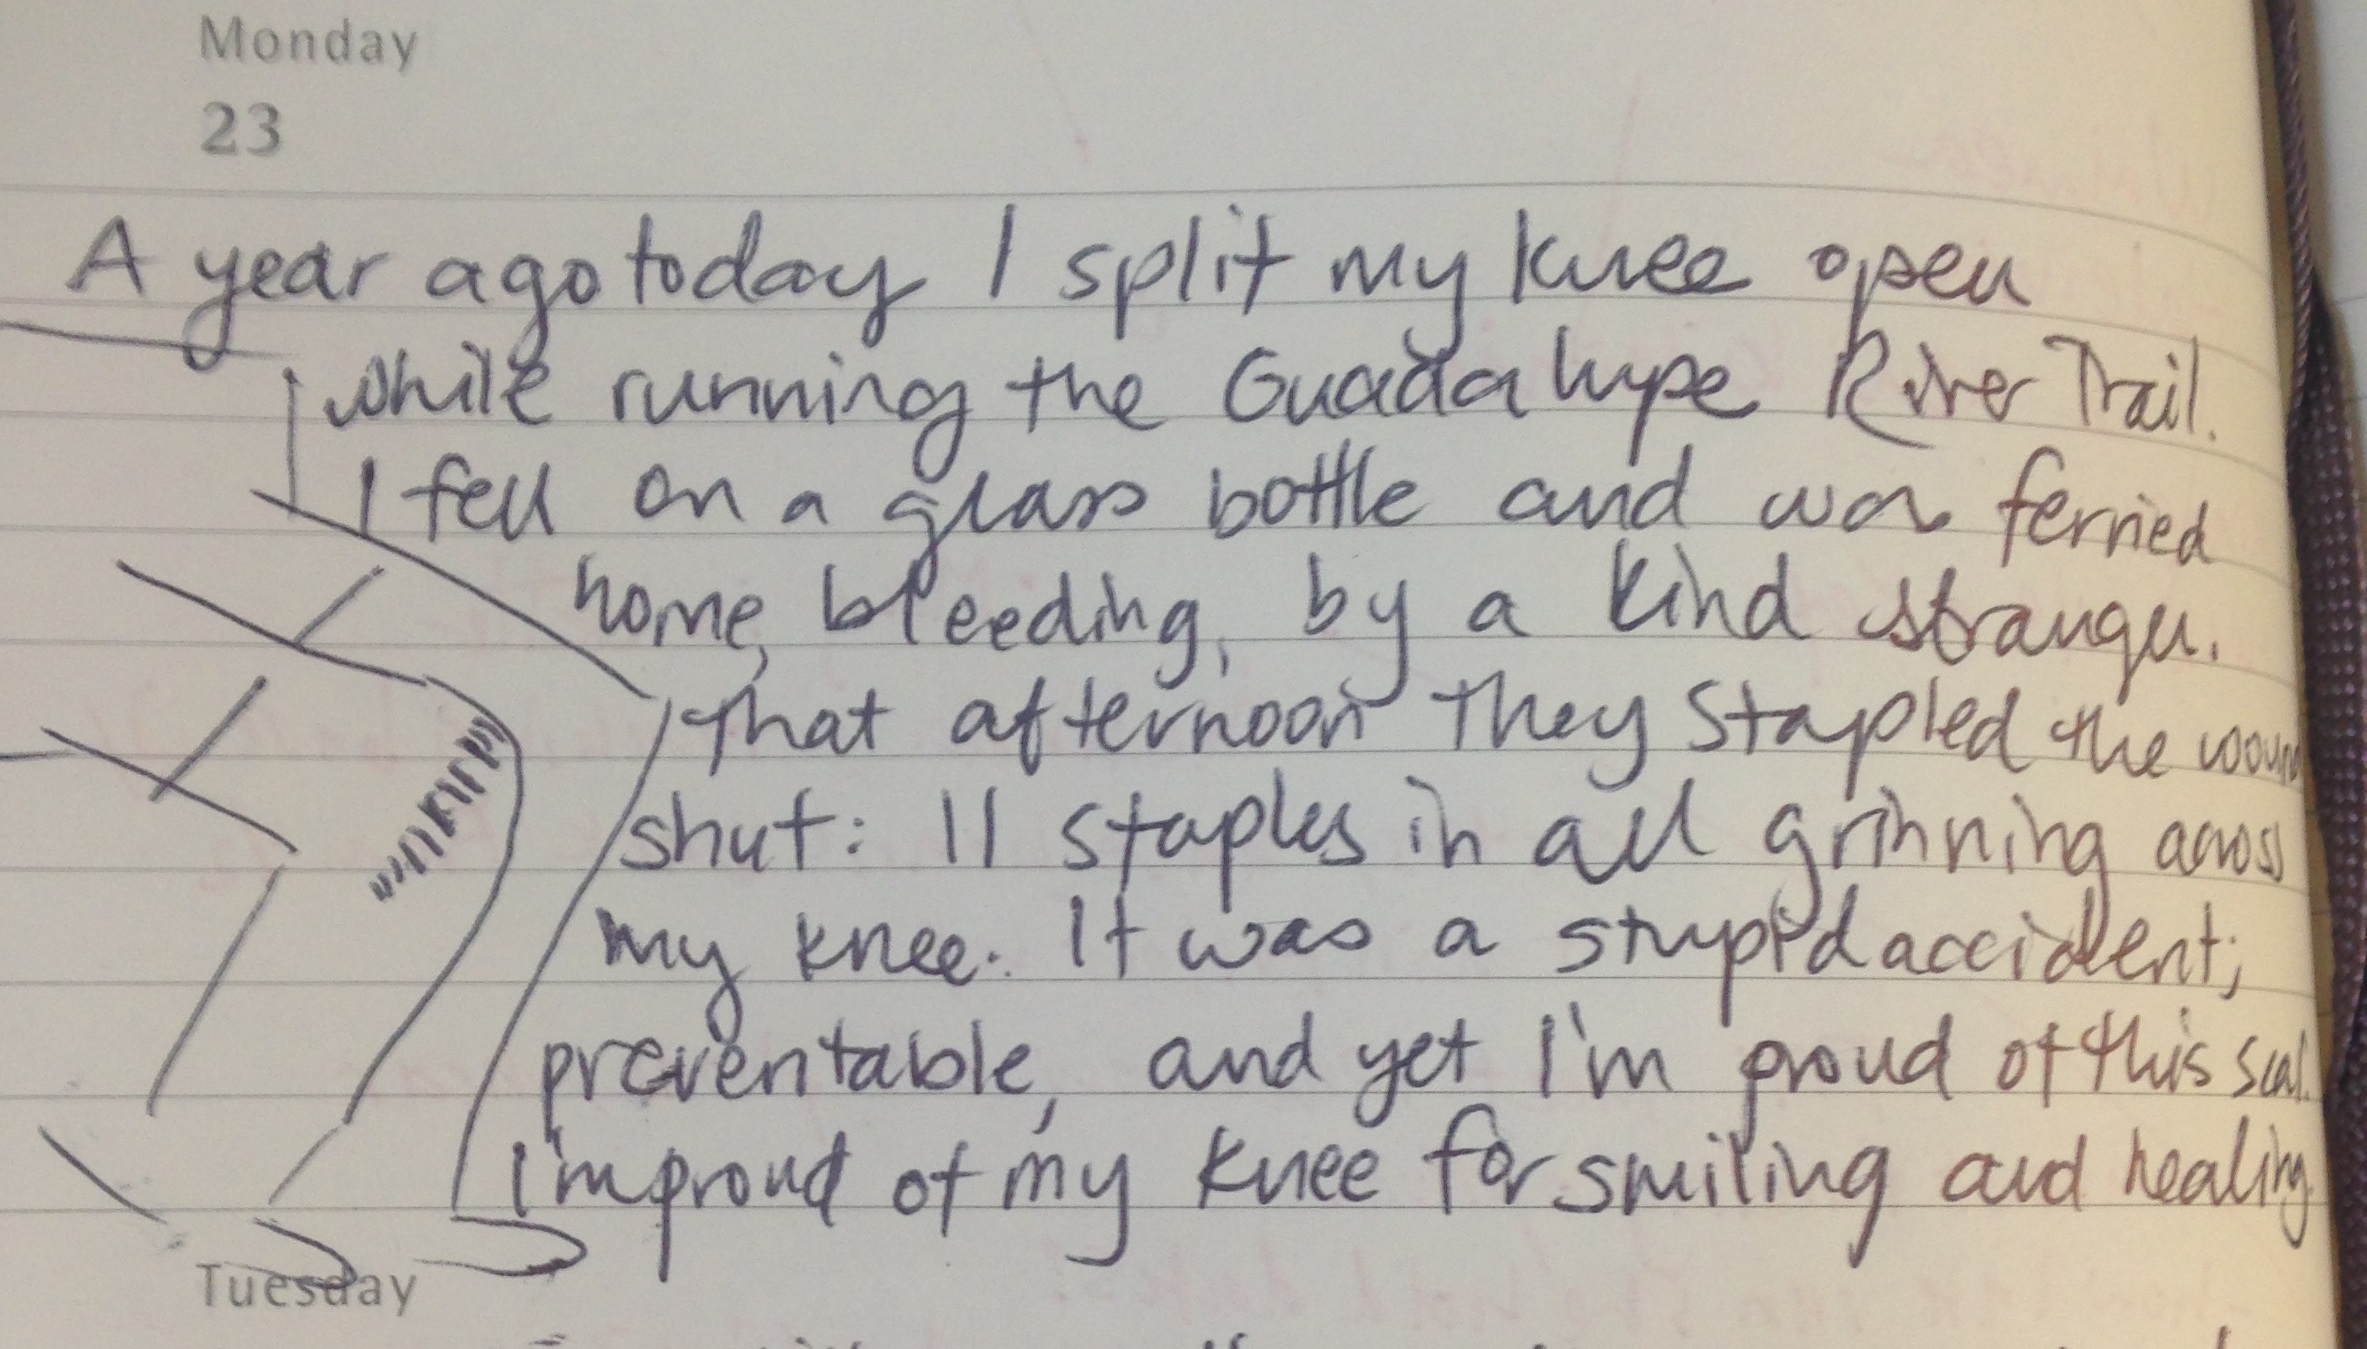 Monday
23
A year ago today I split my knee open
while running the Guadalupe River Trail.
I fell on a glass bottle and was ferried
home, bleeding, by a kind stranger.
That afternoon they stapled the wound
shut: 11 staples in all grinning across
my knee. It was a stupid accident;
preventable, and yet I'm proud of this scar.
I'm proud of my knee for smiling and healing.
Tuesday